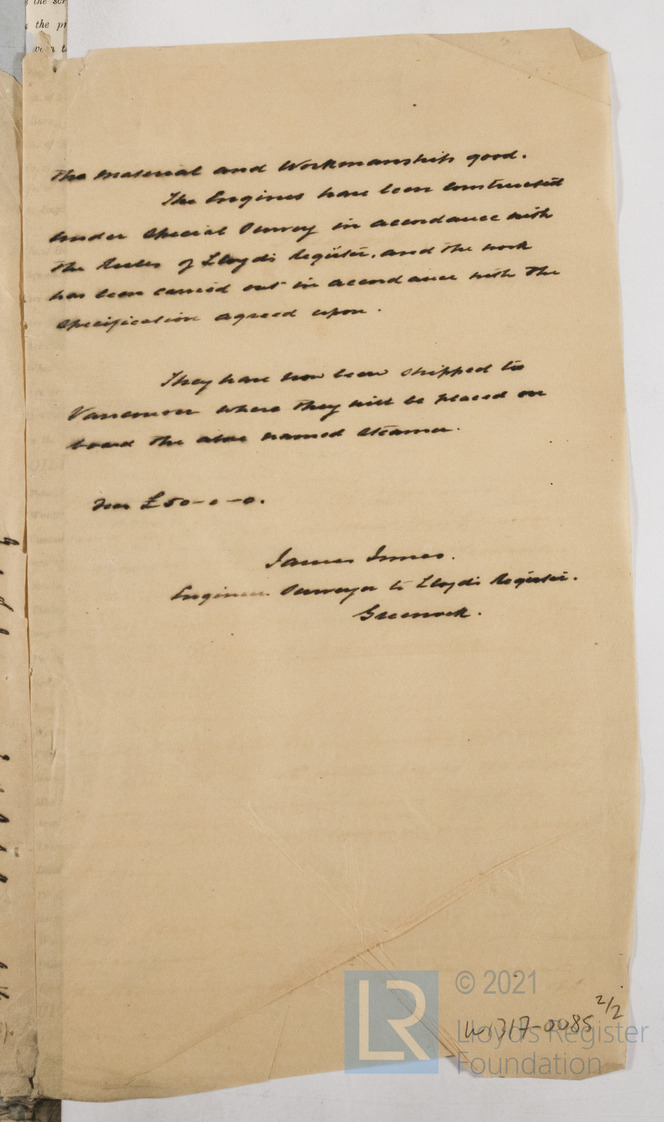 the material and Workmanship good.
The Engines have been constructed
under Special Survey in accordance with
the Rules of Lloyd's Register, and the work
has been carried out in accordance with the
Specification agreed upon.
They have now been shipped to
Vancouver where they will be placed on
board the above named Steamer.
Fee £50-0-0.
James Innes.
Engineer Surveyor to Lloyd's Register.
Greenock.
© 2021
2/2
W1317-0085
LR
Lloyd's Register
Foundation